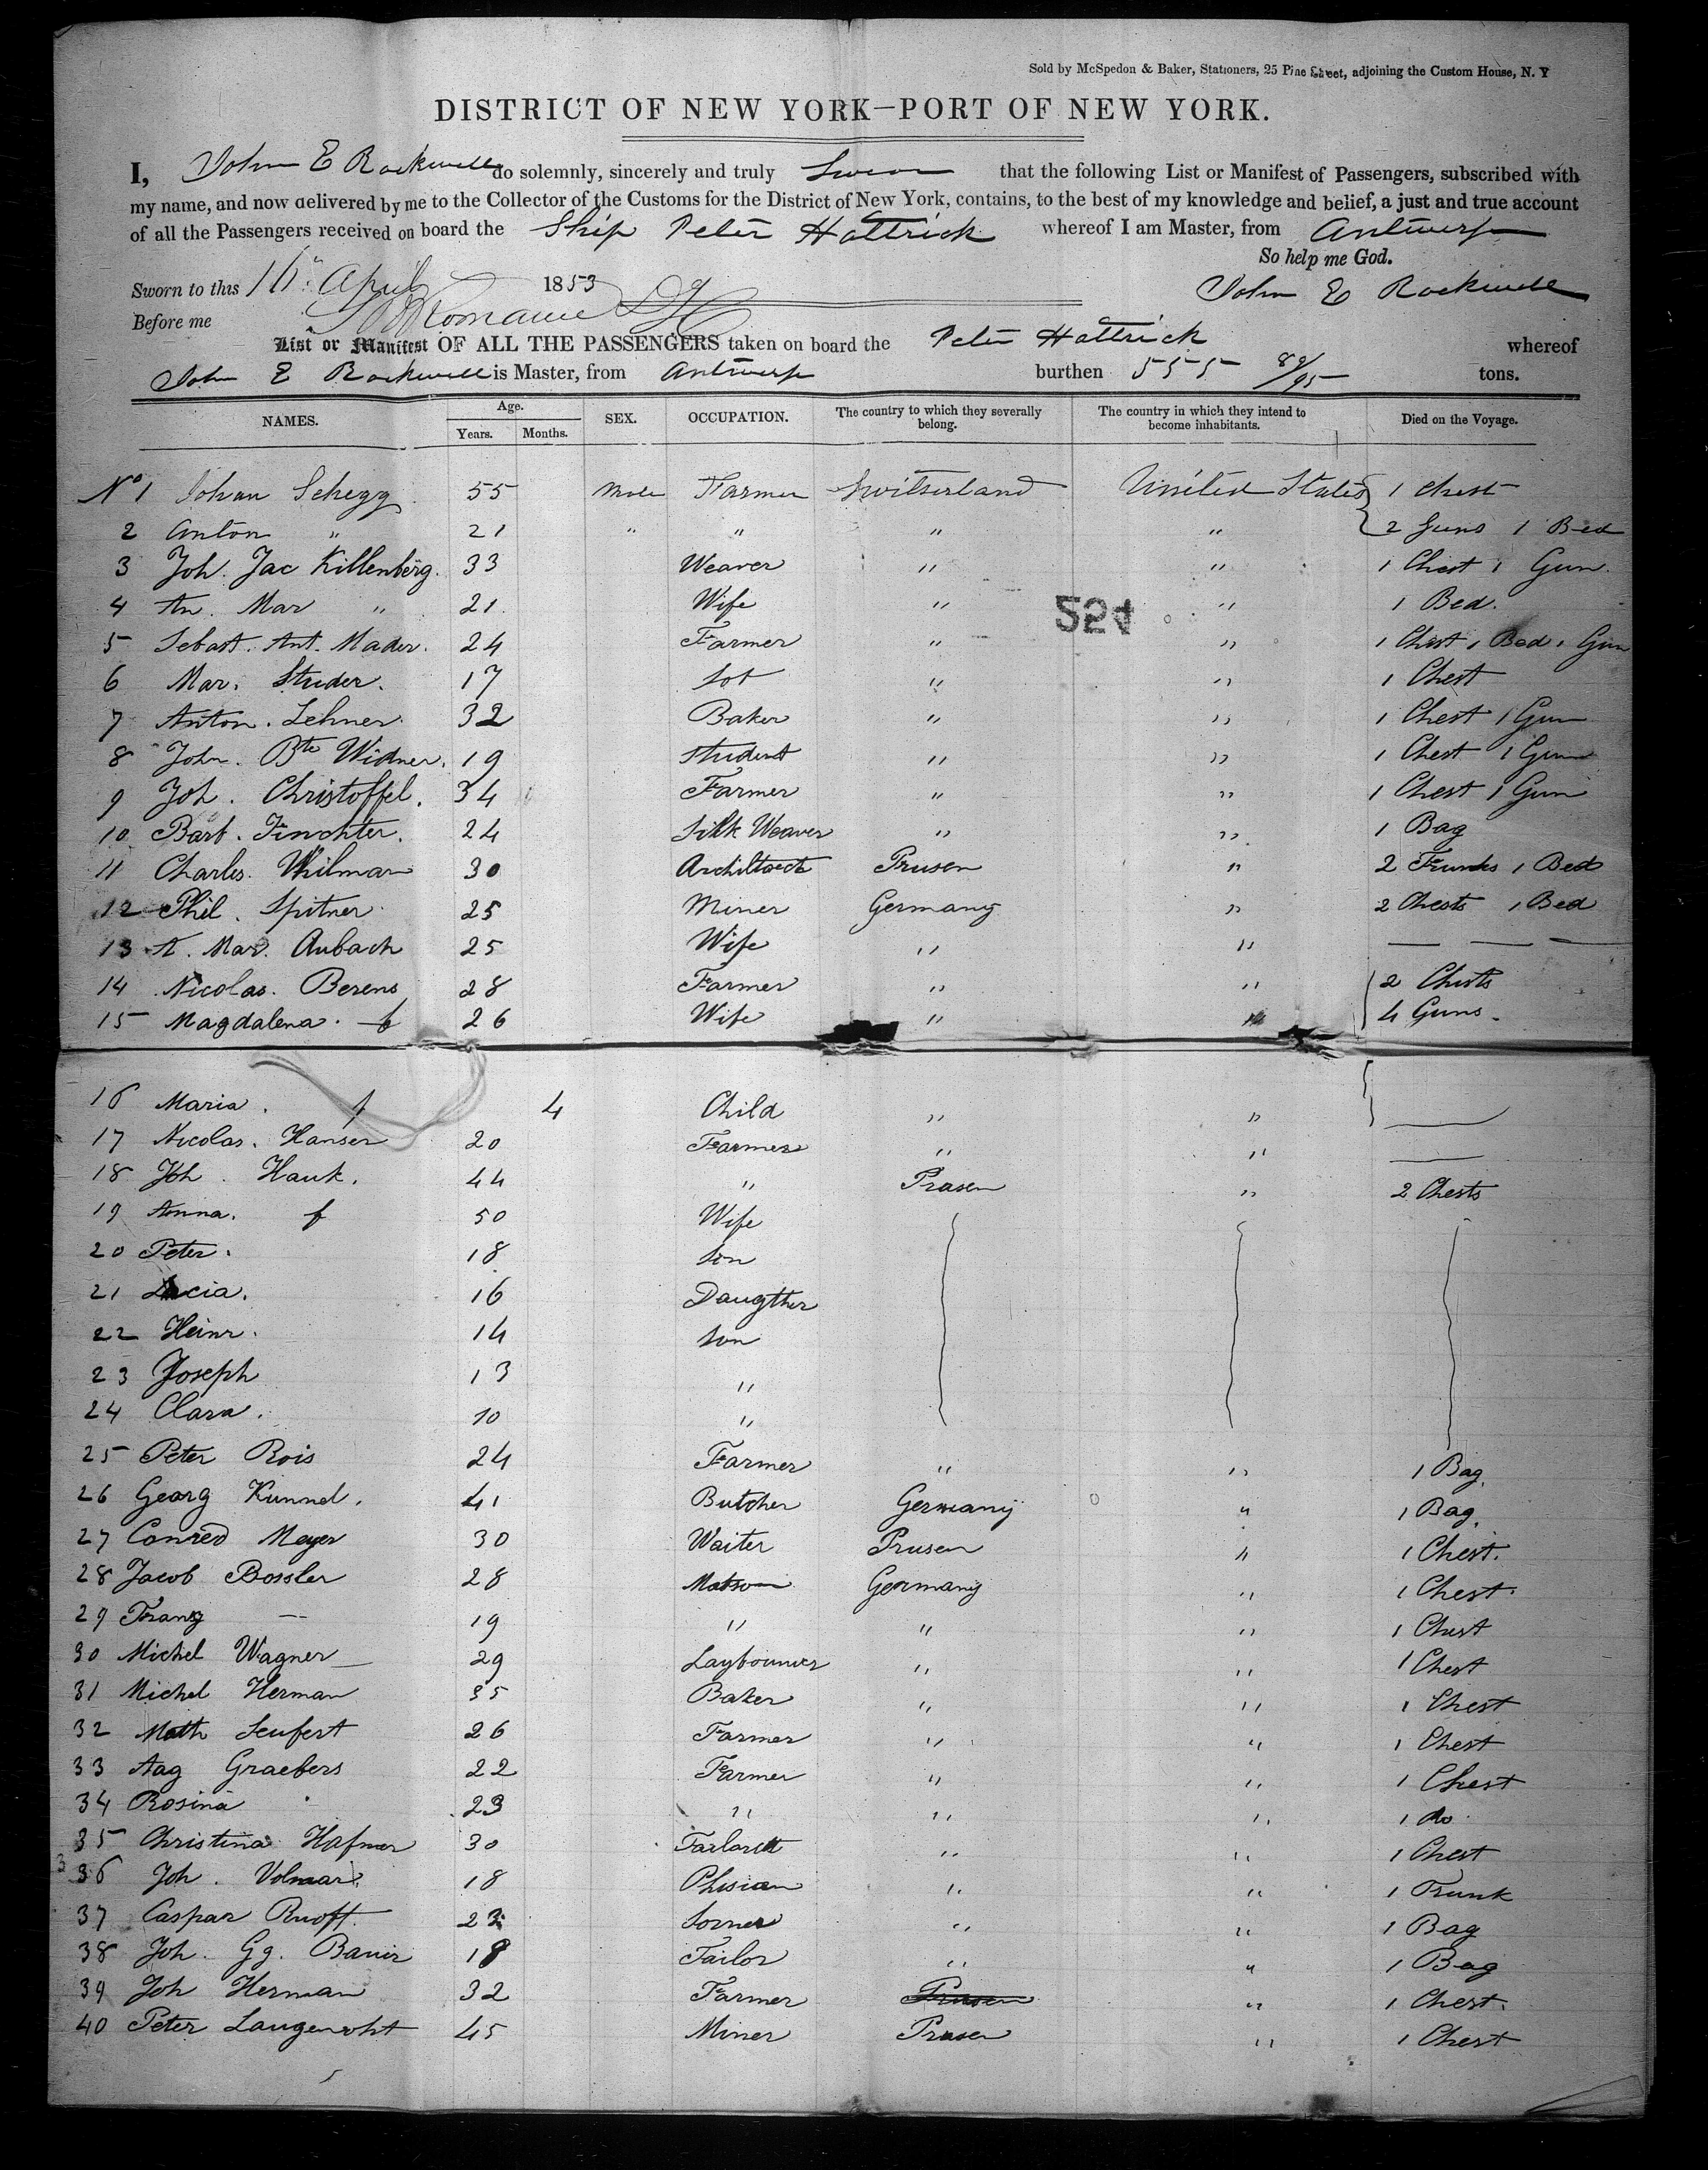 Sold by McSpedon & Baker, Stationers, 25 Pine Street, adjoining the Custom House, N. Y
DISTRICT OF NEW YORK—PORT OF NEW YORK.
I, John E Rockwell do solemnly, sincerely and truly Swear that the following List or Manifest of Passengers, subscribed with
my name, and now delivered by me to the Collector of the Customs for the District of New York, contains, to the best of my knowledge and belief, a just and true account
of all the Passengers received on board the Ship Peter Hattrick whereof I am Master, from Antwerp
So help me God.
Sworn to this 16 April 1853 John E Rockwell
Before me
List or Manifest OF ALL THE PASSENGERS taken on board the Peter Hattrick whereof
John E Rockwell is Master, from Antwerp burthen 555 82/95 tons.
NAMES. Age. Years. Months. SEX. OCCUPATION. The country to which they severally belong. The country in which they intend to become inhabitants. Died on the Voyage.
No 1 Johan Schegg 55 Male Farmer Switserland United States 1 Chest
2 Anton " 21 " " " " 2 Guns 1 Bed
3 Joh. Jac Killenberg. 33 Weaver " " 1 Chest 1 Gun.
4 An. Mar " 21. Wife " " 1 Bed.
524
5 Sebast. Ant. Mader. 24 Farmer " " 1 Chest 1 Bed 1 Gun
6 Mar. Studer. 17 " " 1 Chest
7 Anton. Lehner. 32 Baker " " 1 Chest 1 Gun
8 John. Bte Widner. 19 student " " 1 Chest 1 Gun
9 Joh. Christoffel. 34 Farmer " " 1 Chest 1 Gun
10 Barb. Finchter. 24 Silk Weaver " " 1 Bag
11 Charles. Wilman 30 Architect Prusen " 2 Trunks 1 Bed
12 Phil. Spitner 25 Miner Germany " 2 Chests 1 Bed
13 A. Mar. Aubach 25 Wife " " — — —
14 Nicolas. Berens 28 Farmer " " 2 Chests
15 Magdalena. f 26 Wife " " 4 Guns.
16 Maria. f 4 Child " " —
17 Nicolas. Hansen 20 Farmer " " —
18 Joh. Hauk. 44 " Prusen " 2 Chests
19 Anna. f 50 Wife
20 Peter. 18 Son
21 Lucia. 16 Daugther
22 Heinr. 14 Son
23 Joseph 13 "
24 Clara. 10 "
25 Peter Rois 24 Farmer " " 1 Bag.
26 Georg Kunnel. 41 Butcher Germany " 1 Bag.
27 Conred Meyer 30 Waiter Prusen " 1 Chest.
28 Jacob Bossler 28 Matson Germany " 1 Chest.
29 Franz — 19 " " " 1 Chest
30 Michel Wagner 29 Laybourer " " 1 Chest
31 Michel Herman 35 Baker " " 1 Chest
32 Math Seufert 26 Farmer " " 1 Chest
33 Aag Graebers 22 Farmer " " 1 Chest
34 Rosina " 23 " " " 1 do
35 Christina Hafner 30 " " 1 Chest
36 Joh. Volmar. 18 Phisian " " 1 Trunk
37 Caspar Ruoff. 23 " " 1 Bag
38 Joh. Gg. Bauer 18 Tailor " " 1 Bag
39 Joh Herman 32 Farmer Prusen " 1 Chest.
40 Peter Laugenoht 45 Miner Prusen " 1 Chest